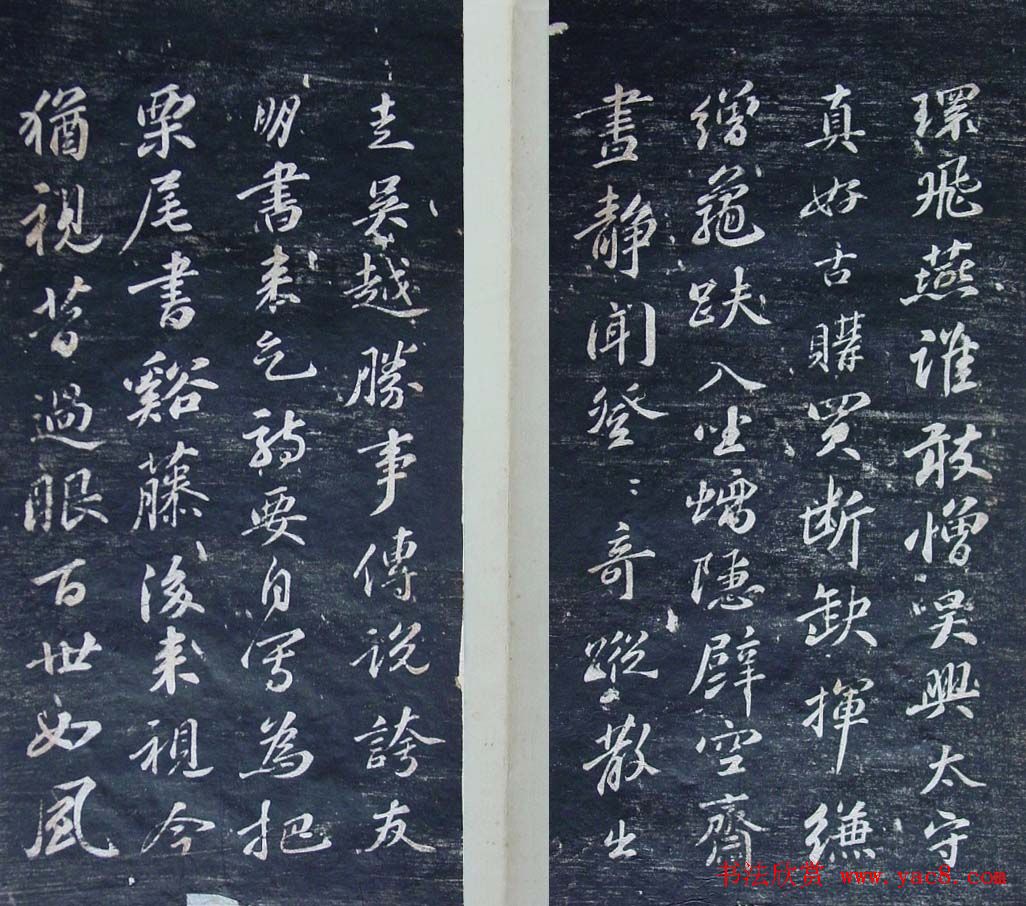 環飛燕誰敢憎吳興太守
真好古購買断缺揮縑
繒龜趺入坐螭隱壁空齋
晝靜聞登〻奇蹤散出
走吳越勝事傳說誇友
朋書来乞詩要自寫為把
栗尾書谿藤後来視今
猶視昔過眼百世如風
书法欣赏 www.yac8.com